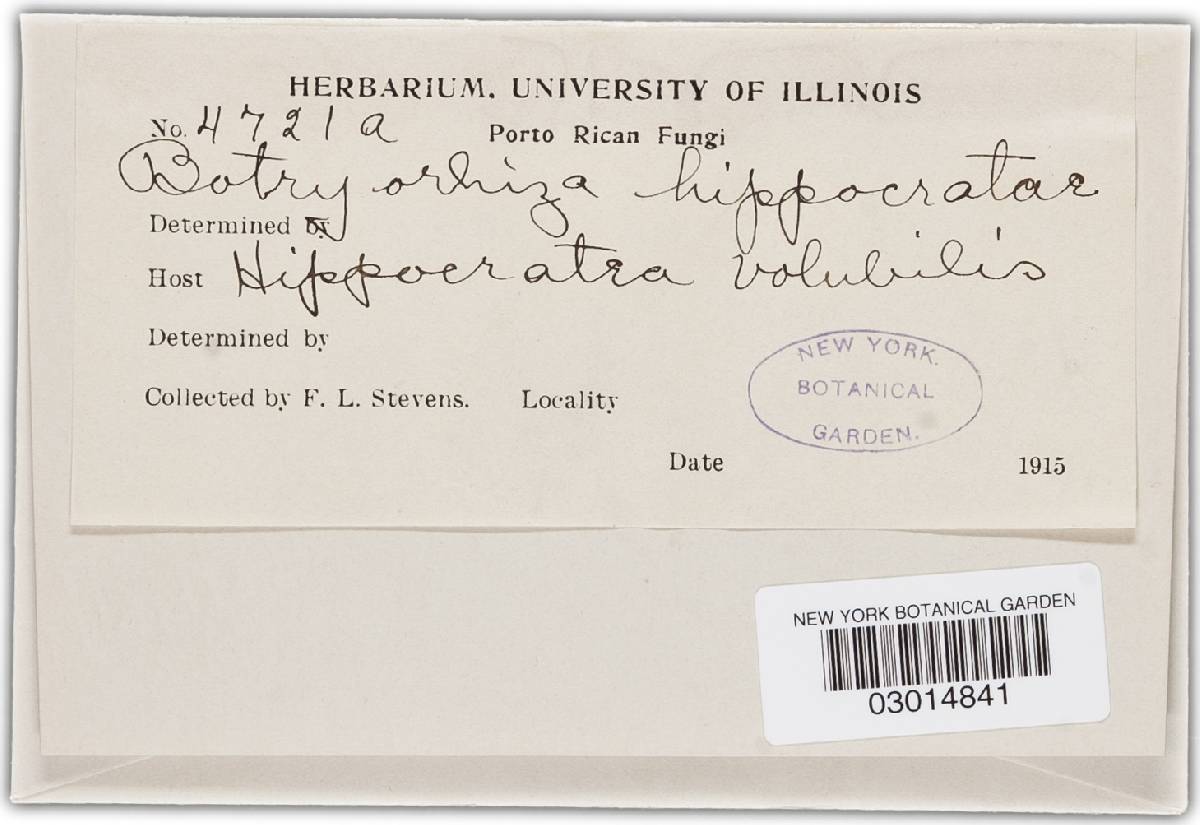 HERBARIUM. UNIVERSITY OF ILLINOIS
No. 4721a Porto Rican Fungi
Botryorhiza hippocratae
Determined by
Host Hippocratea volubilis
Determined by
Collected by F. L. Stevens. Locality
NEW YORK.
BOTANICAL
GARDEN.
Date 1915
NEW YORK BOTANICAL GARDEN
03014841